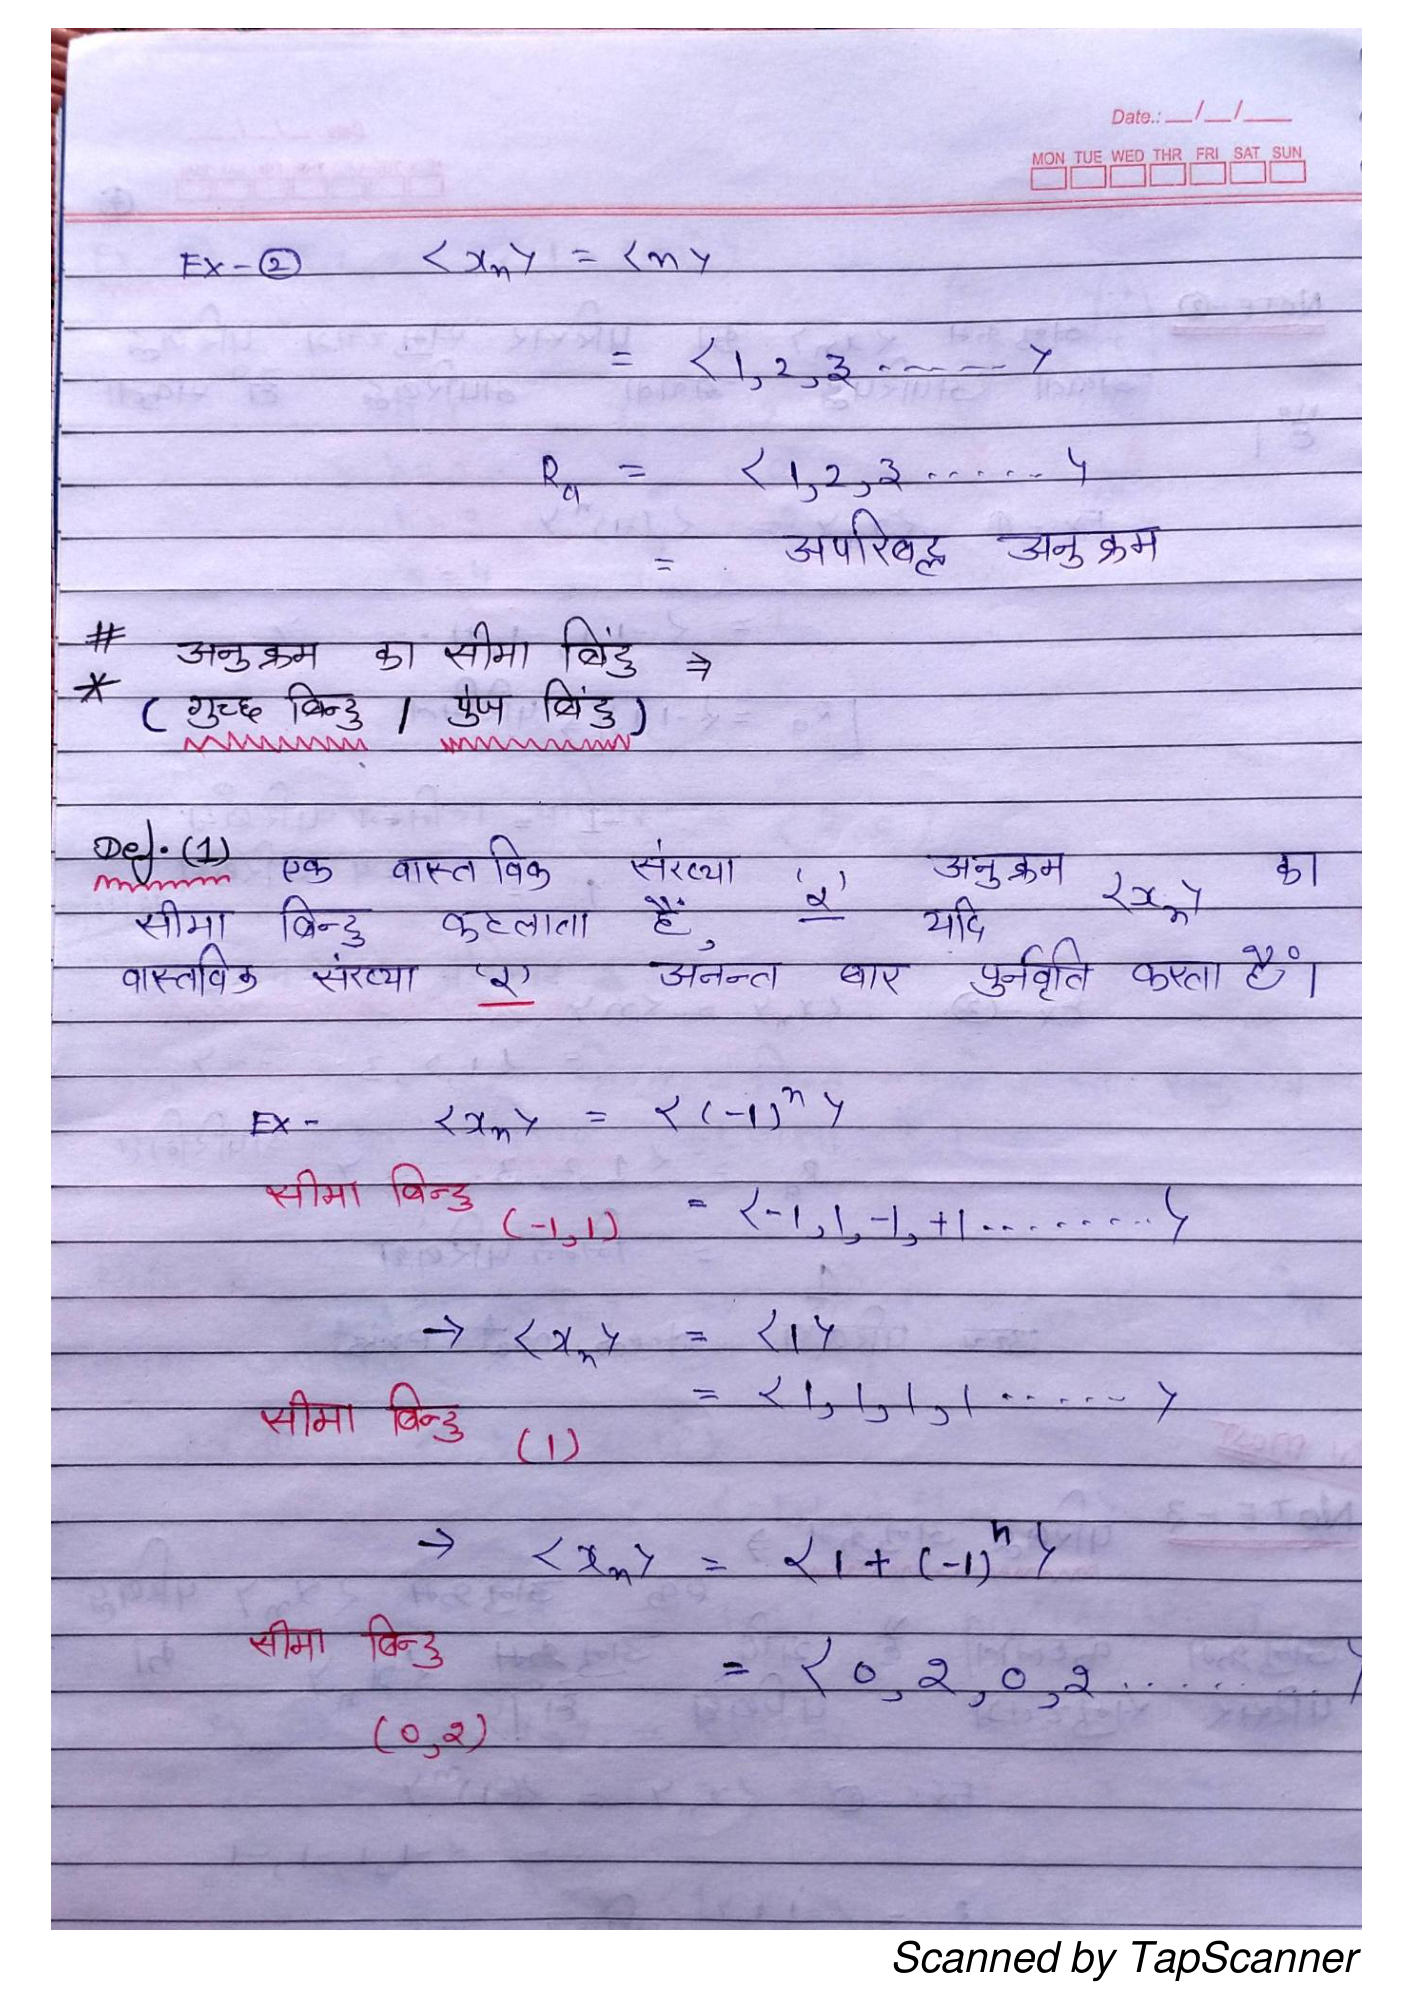 Date.: __/__/___
MON TUE WED THR FRI SAT SUN
EX-② <xₙ> = <n>
= <1,2,3 ------>
Rₐ = <1,2,3 ......>
= अपरिबद्ध अनुक्रम
# अनुक्रम का सीमा बिंदु ⇒
* (गुच्छ बिन्दु / पुंज बिंदु)
Def.(1) एक वास्तविक संख्या 'x' अनुक्रम <xₙ> का
सीमा बिन्दु कहलाता हैं, यदि
वास्तविक संख्या 'x' अनन्त बार पुर्नवृति करता हैं।
EX- <xₙ> = <(-1)ⁿ>
सीमा बिन्दु (-1,1) = <-1,1,-1,+1.........>
→ <xₙ> = <1>
= <1,1,1,1 ......>
सीमा बिन्दु (1)
→ <xₙ> = <1+(-1)ⁿ>
सीमा बिन्दु = <0,2,0,2 .........>
(0,2)
Scanned by TapScanner